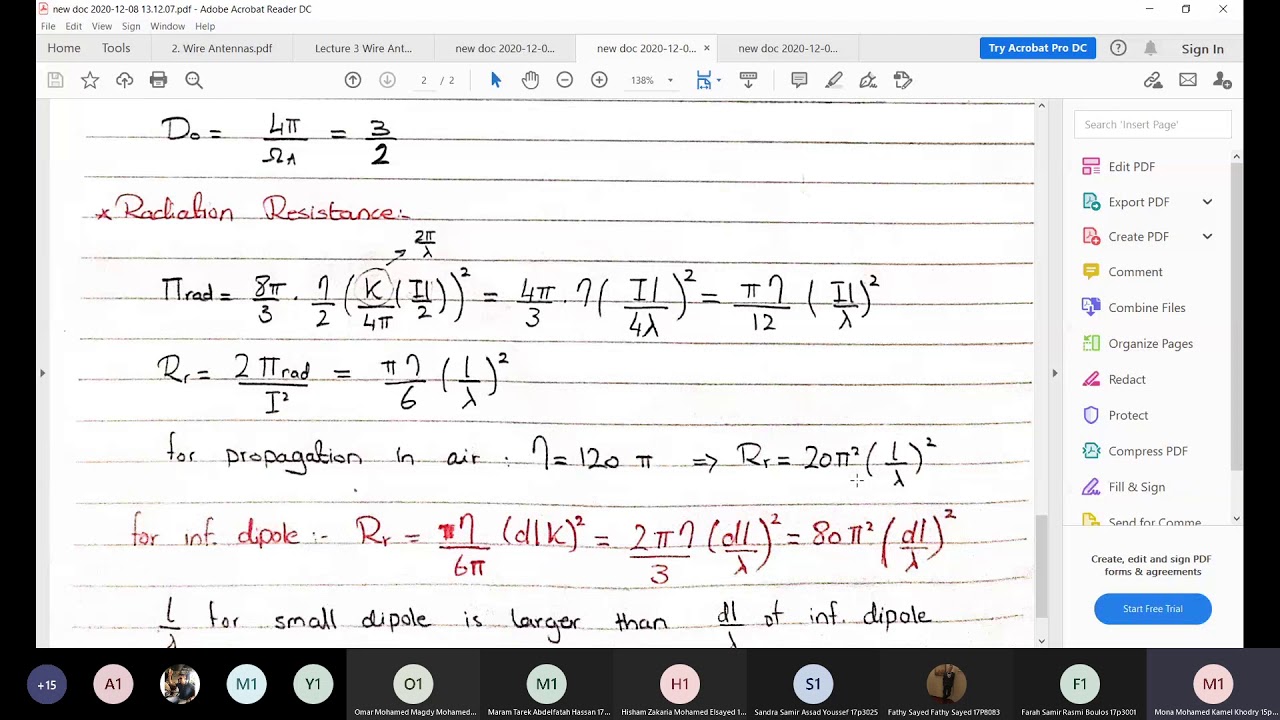 new doc 2020-12-08 13.12.07.pdf - Adobe Acrobat Reader DC
File Edit View Sign Window Help
Home Tools 2. Wire Antennas.pdf Lecture 3 Wire Ant... new doc 2020-12-0... new doc 2020-12-0... × new doc 2020-12-0... Try Acrobat Pro DC Sign In
2 / 2 138%
D₀ = 4π/Ω_A = 3/2
* Radiation Resistance:-
2π/λ
Πrad = 8π/3 . η/2 (K/4π (Il/2))² = 4π/3 . η (Il/4λ)² = πη/12 (Il/λ)²
Rr = 2Πrad/I² = πη/6 (l/λ)²
for propagation in air : η = 120 π => Rr = 20π² (l/λ)²
for inf. dipole :- Rr = η/6π (dl k)² = 2πη/3 (dl/λ)² = 80π² (dl/λ)²
l/λ for small dipole is larger than dl/λ of inf. dipole
Search 'Insert Page'
Edit PDF
Export PDF
Create PDF
Comment
Combine Files
Organize Pages
Redact
Protect
Compress PDF
Fill & Sign
Send for Comme
Create, edit and sign PDF
forms & agreements
Start Free Trial
+15 A1 M1 Y1 O1 M1 H1 S1 F1 M1
Omar Mohamed Magdy Mohamed... Maram Tarek Abdelfatah Hassan 17... Hisham Zakaria Mohamed Elsayed 1... Sandra Samir Assad Youssef 17p3025 Fathy Sayed Fathy Sayed 17P8083 Farah Samir Rasmi Boulos 17p3001 Mona Mohamed Kamel Khodry 15p...